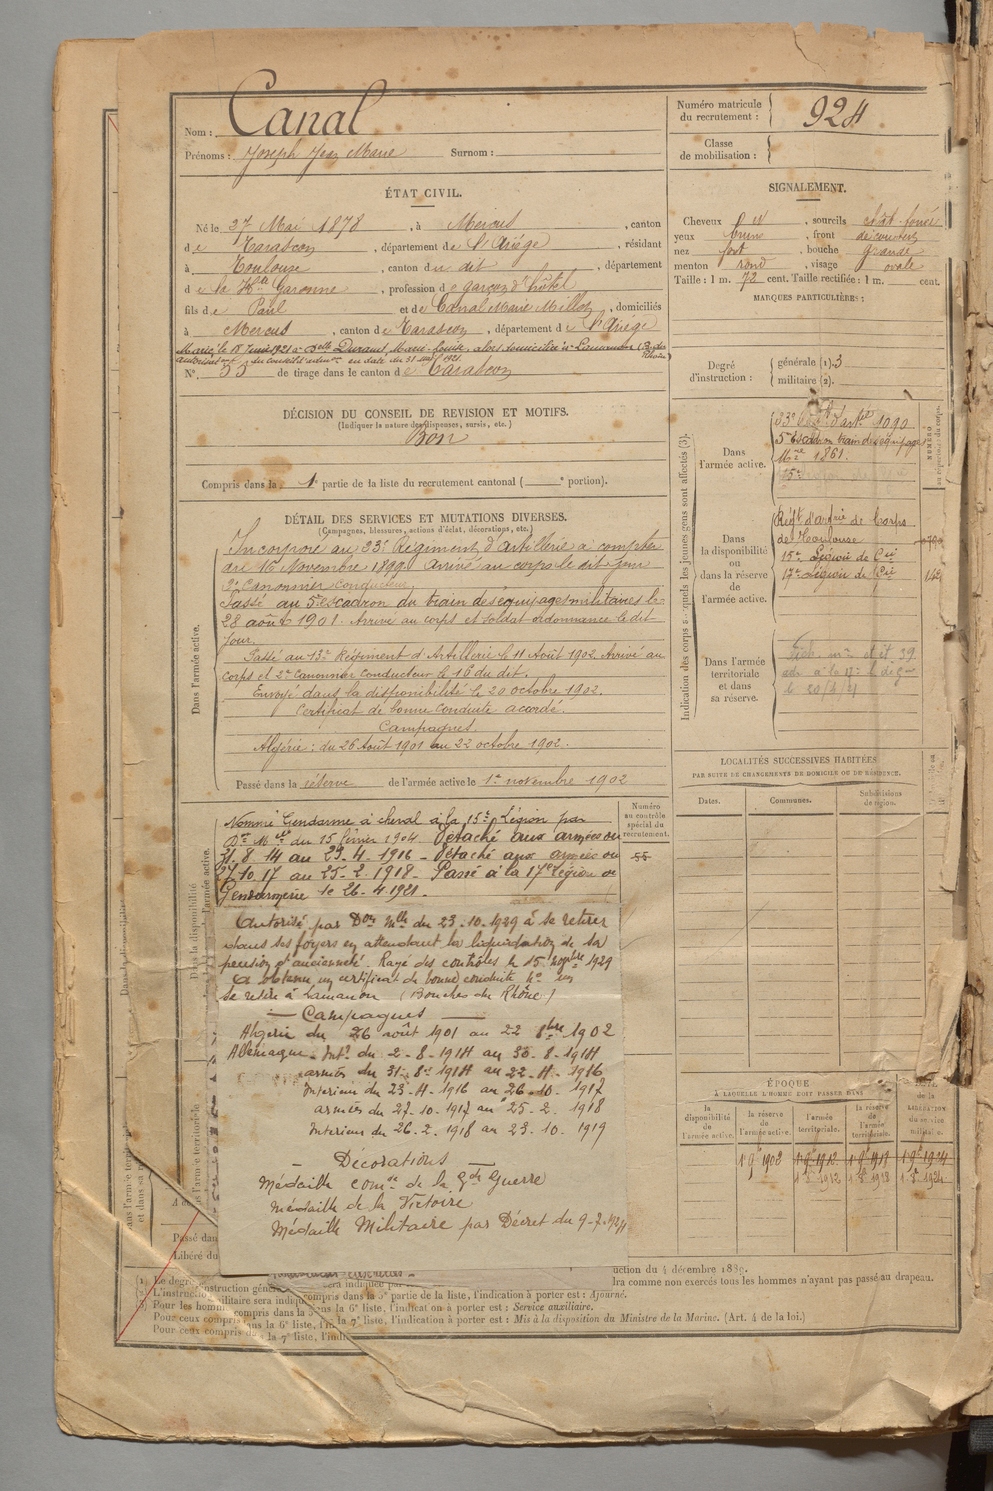 Nom : Canal
Prénoms : Joseph Jean Marie Surnom :
ÉTAT CIVIL.
Né le 27 Mai 1878, à Mercus, canton
de Tarascon, département de l'Ariége, résidant
à Toulouse, canton du dit, département
de la Hte Garonne, profession de garçon d'hôtel,
fils de Paul et de Canal Marie Millon, domiciliés
à Mercus, canton de Tarascon, département de l'Ariége
Marié le 18 Juin 1921 à Delle Durand, Marie-Louise, alors domiciliée à Lamanon (B. du Rhône)
en date du 31 mai 1921
N° 33 de tirage dans le canton de Tarascon
DÉCISION DU CONSEIL DE REVISION ET MOTIFS.
(Indiquer la nature des dispenses, sursis, etc.)
Bon
Compris dans la 1e partie de la liste du recrutement cantonal ( e portion).
DÉTAIL DES SERVICES ET MUTATIONS DIVERSES.
(Campagnes, blessures, actions d'éclat, décorations, etc.)
Dans l'armée active.
Incorporé au 23e Régiment d'artillerie à compter
du 16 Novembre 1899. Arrivé au corps le dit jour
2e Canonnier conducteur
Passé au 5e escadron du train des équipages militaires le
28 août 1901. Arrivé au corps et soldat ordonnance le dit
jour.
Passé au 13e Régiment d'Artillerie le 11 Août 1902. Arrivé au
corps et 2e canonnier conducteur le 16 du dit.
Envoyé dans la disponibilité le 20 octobre 1902.
Certificat de bonne conduite accordé.
Campagnes.
Algérie : du 26 Août 1901 au 22 octobre 1902.
Passé dans la réserve de l'armée active le 1er novembre 1902
Nommé Gendarme à cheval à la 15e Légion par
Don Mlle du 15 février 1904 Détaché aux armées du
31.8.14 au 23.4.1916 - Détaché aux armées du
27.10.17 au 25.2.1918 - Passé à la 17e Légion de
Gendarmerie le 26-4 1921.
Autorisé par Don Mlle du 23-10-1929 à se retirer
dans ses foyers en attendant la liquidation de sa
pension d'ancienneté. Rayé des contrôles le 15 novbre 1929
A obtenu un certificat de bonne conduite
Se retire à Lamanon (Bouches du Rhône)
Campagnes
Algérie du 26 août 1901 au 22 8bre 1902
Allemagne - Intr du 2-8-1914 au 30-8-1914
armées du 31-8-1914 au 22-4-1916
Intérieur du 23-4-1916 au 26-10-1917
armées du 27-10-1917 au 25-2-1918
Intérieur du 26-2-1918 au 23-10-1919
Décorations
Médaille comve de la Gde Guerre
Médaille de la Victoire
Médaille Militaire par Décret du 9-7-1924
Numéro
au contrôle
spécial du
recrutement.
55
Numéro matricule
du recrutement : 924
Classe
de mobilisation :
SIGNALEMENT.
Cheveux , sourcils chât. foncé
yeux bruns, front découvert
nez fort, bouche grande
menton rond, visage ovale
Taille : 1 m. 72 cent. Taille rectifiée : 1 m. cent.
MARQUES PARTICULIÈRES :
Degré
d'instruction : générale (1). 3
militaire (2).
Indication des corps auxquels les jeunes gens sont affectés (3).
Dans
l'armée active.
23e d'artie 1090
5e escadron train des équipages
Mle 1861.
Dans
la disponibilité
ou
dans la réserve
de
l'armée active.
Régt d'artie de Corps
de Toulouse
15e Légion de Gie
17e Légion de Gie
Dans l'armée
territoriale
et dans
sa réserve.
LOCALITÉS SUCCESSIVES HABITÉES
PAR SUITE DE CHANGEMENTS DE DOMICILE OU DE RÉSIDENCE.
Dates. Communes. Subdivisions
de région.
ÉPOQUE
À LAQUELLE L'HOMME DOIT PASSER DANS
la
disponibilité
de
l'armée active.
la réserve
de
l'armée active.
l'armée
territoriale.
la réserve
de
l'armée
territoriale.
DATE
de la
LIBÉRATION
du service
militaire.
1er 9e 1902 1er 9e 1912 1er 9e 1918 1er 9e 1924
Passé dans
Libéré du
uction du 4 décembre 1889.
dra comme non exercés tous les hommes n'ayant pas passé au drapeau.
(1) Le degré
(2) L'instruction militaire sera indiquée
(3) Pour les hommes compris dans la 5e partie de la liste, l'indication à porter est : Ajourné.
Pour ceux compris dans la 6e liste, l'indication à porter est : Service auxiliaire.
Pour ceux compris dans la 7e liste, l'indication à porter est : Mis à la disposition du Ministre de la Marine. (Art. 4 de la loi.)